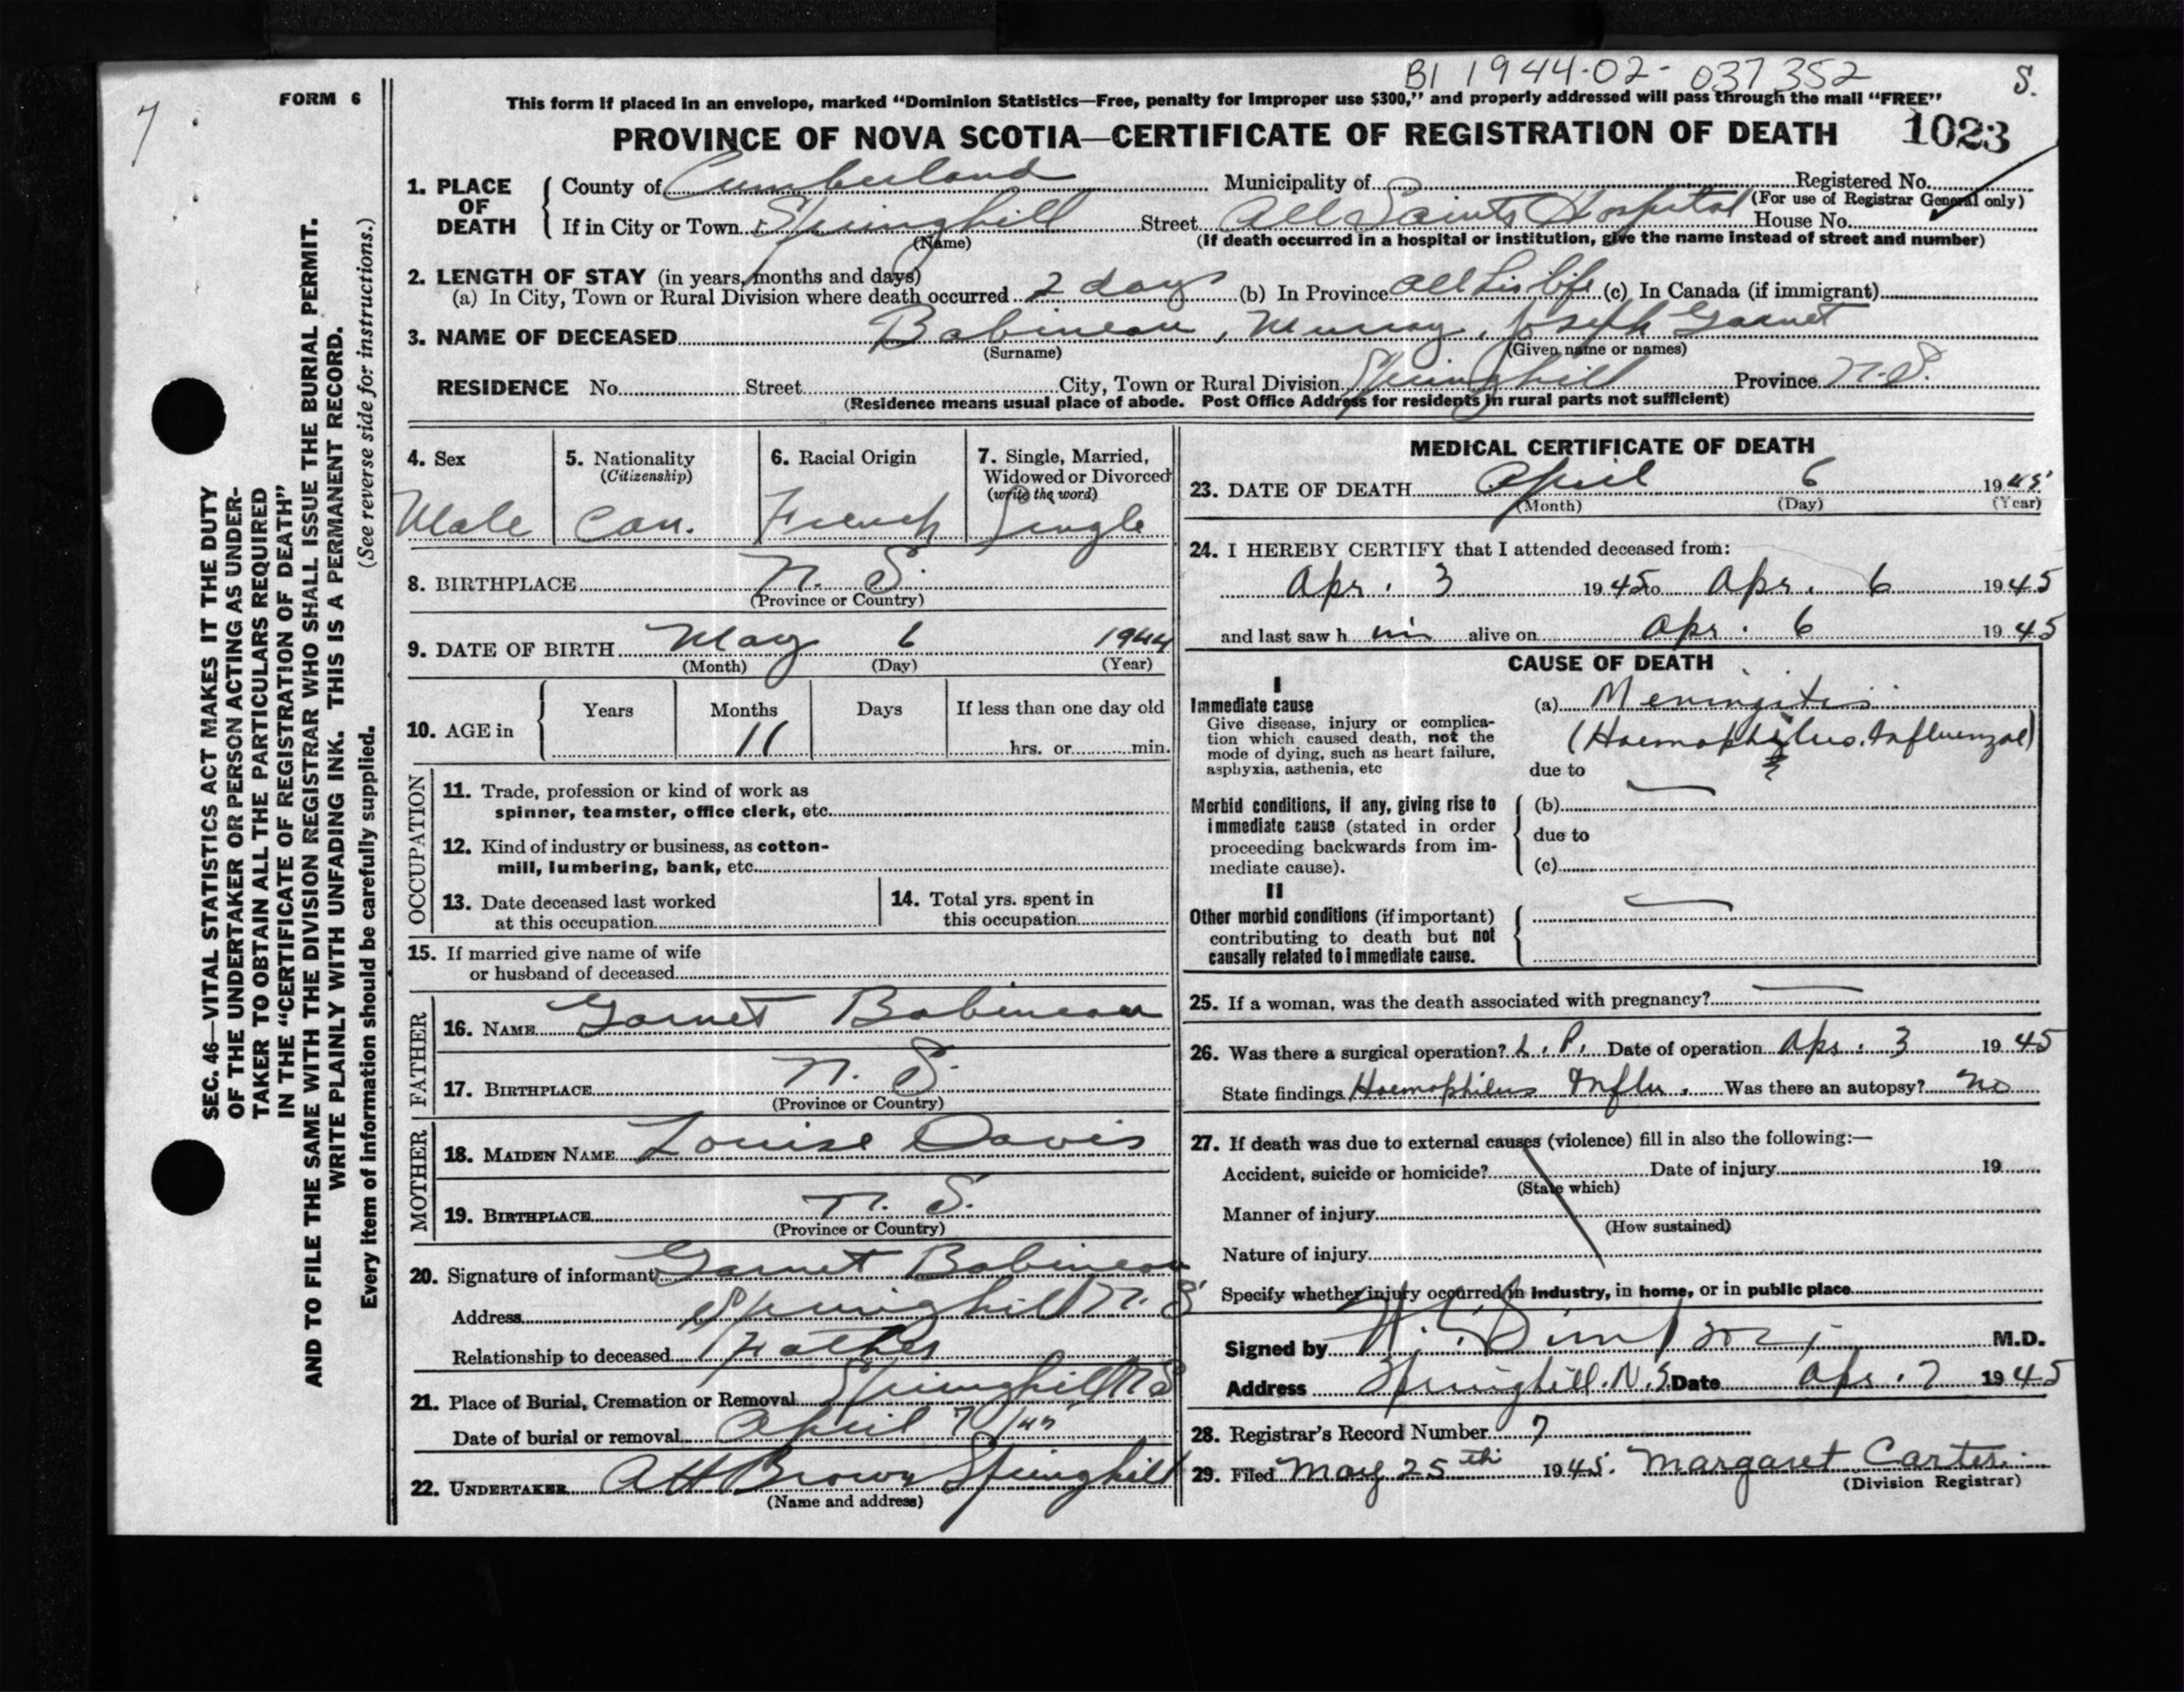 BI 1944-02-037352 S.
7
FORM 6
This form if placed in an envelope, marked “Dominion Statistics—Free, penalty for improper use $300,” and properly addressed will pass through the mail “FREE”
PROVINCE OF NOVA SCOTIA—CERTIFICATE OF REGISTRATION OF DEATH 1023
SEC. 46—VITAL STATISTICS ACT MAKES IT THE DUTY
OF THE UNDERTAKER OR PERSON ACTING AS UNDER-
TAKER TO OBTAIN ALL THE PARTICULARS REQUIRED
IN THE “CERTIFICATE OF REGISTRATION OF DEATH”
AND TO FILE THE SAME WITH THE DIVISION REGISTRAR WHO SHALL ISSUE THE BURIAL PERMIT.
WRITE PLAINLY WITH UNFADING INK. THIS IS A PERMANENT RECORD.
Every item of information should be carefully supplied. (See reverse side for instructions.)
1. PLACE OF DEATH
County of Cumberland Municipality of Registered No.
(For use of Registrar General only)
If in City or Town Springhill Street All Saints Hospital House No.
(Name) (If death occurred in a hospital or institution, give the name instead of street and number)
2. LENGTH OF STAY (in years, months and days)
(a) In City, Town or Rural Division where death occurred 2 days (b) In Province All his life (c) In Canada (if immigrant)
3. NAME OF DECEASED Babineau, Murray, Joseph Garnet
(Surname) (Given name or names)
RESIDENCE No. Street City, Town or Rural Division Springhill Province N.S.
(Residence means usual place of abode. Post Office Address for residents in rural parts not sufficient)
4. Sex
Male
5. Nationality
(Citizenship)
Can.
6. Racial Origin
French
7. Single, Married,
Widowed or Divorced
(write the word)
Single
8. BIRTHPLACE N. S.
(Province or Country)
9. DATE OF BIRTH May 6 1944
(Month) (Day) (Year)
10. AGE in Years Months Days If less than one day old
11 hrs. or min.
OCCUPATION
11. Trade, profession or kind of work as
spinner, teamster, office clerk, etc.
12. Kind of industry or business, as cotton-
mill, lumbering, bank, etc.
13. Date deceased last worked
at this occupation
14. Total yrs. spent in
this occupation
15. If married give name of wife
or husband of deceased
FATHER
16. NAME Garnet Babineau
17. BIRTHPLACE N. S.
(Province or Country)
MOTHER
18. MAIDEN NAME Louise Davis
19. BIRTHPLACE N. S.
(Province or Country)
20. Signature of informant Garnet Babineau
Address Springhill N. S
Relationship to deceased Father
21. Place of Burial, Cremation or Removal Springhill N S
Date of burial or removal April 7 /45
22. UNDERTAKER A H Brown Springhill
(Name and address)
MEDICAL CERTIFICATE OF DEATH
23. DATE OF DEATH April 6 1945
(Month) (Day) (Year)
24. I HEREBY CERTIFY that I attended deceased from:
Apr. 3 1945 to Apr. 6 1945
and last saw him alive on Apr. 6 1945
CAUSE OF DEATH
I
Immediate cause
Give disease, injury or complica-
tion which caused death, not the
mode of dying, such as heart failure,
asphyxia, asthenia, etc
(a) Meningitis
(Haemophilus Influenzae)
due to
Morbid conditions, if any, giving rise to
immediate cause (stated in order
proceeding backwards from im-
mediate cause).
(b)
due to
(c)
II
Other morbid conditions (if important)
contributing to death but not
causally related to immediate cause.
25. If a woman, was the death associated with pregnancy?
26. Was there a surgical operation? L. P. Date of operation Apr. 3 1945
State findings Haemophilus Influ. Was there an autopsy? No
27. If death was due to external causes (violence) fill in also the following:—
Accident, suicide or homicide? Date of injury 19
(State which)
Manner of injury
(How sustained)
Nature of injury
Specify whether injury occurred in industry, in home, or in public place
Signed by Simpson M.D.
Address Springhill. N.S. Date Apr. 7 1945
28. Registrar's Record Number 7
29. Filed May 25th 1945. Margaret Carter
(Division Registrar)